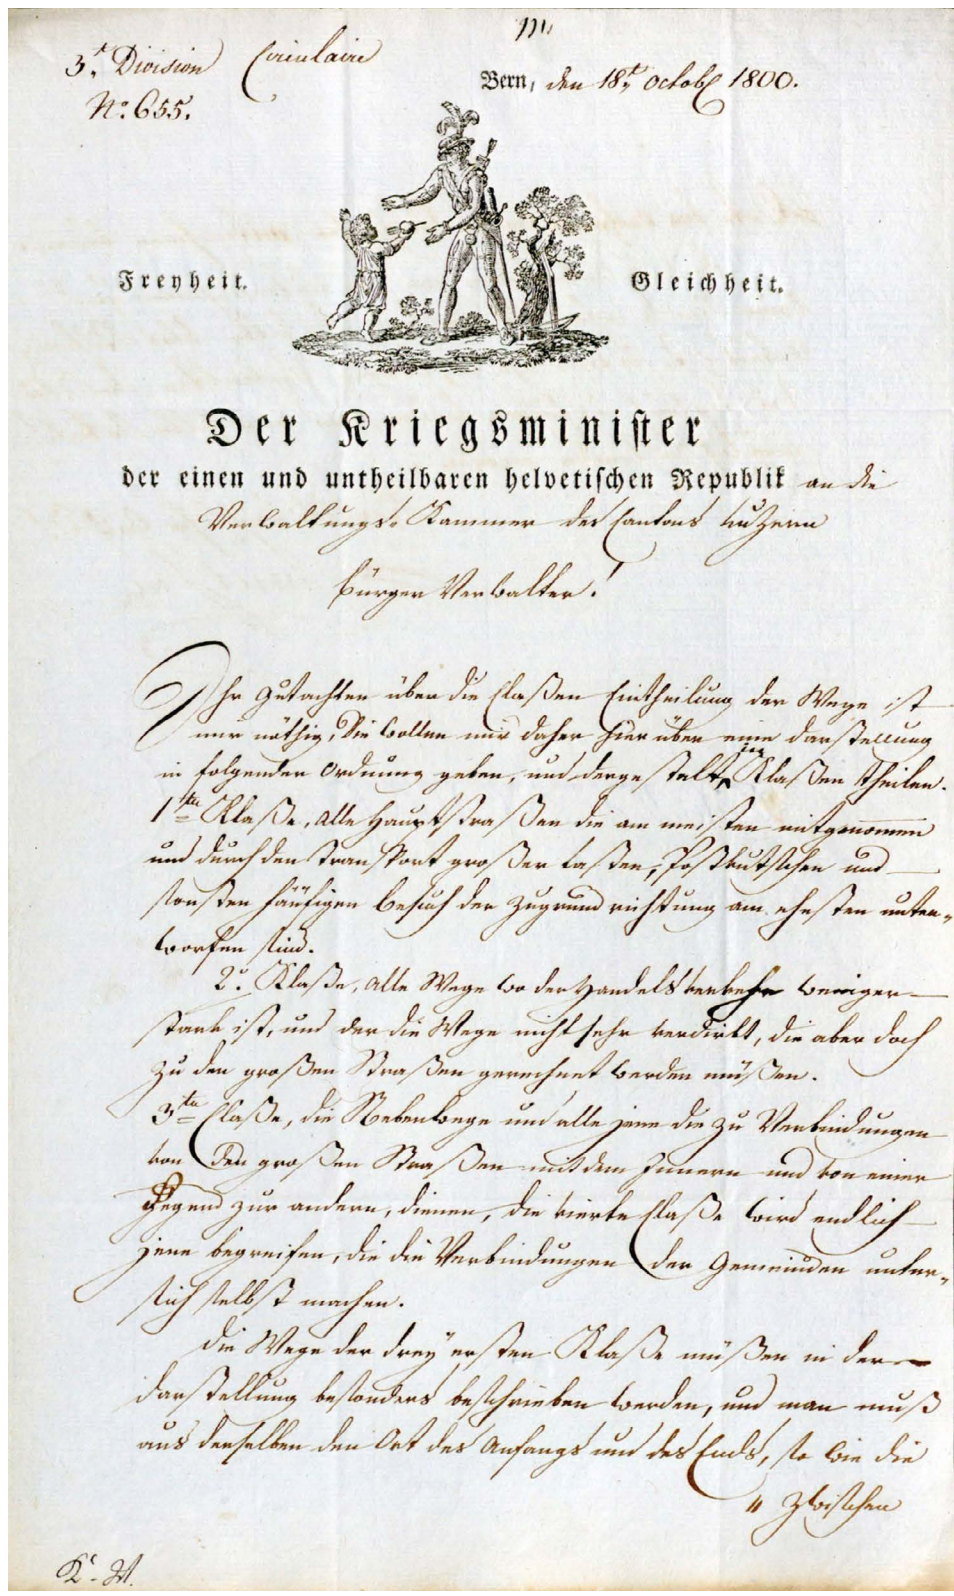 3.t Division Circulaire
No. 655.
Bern, den 18.t Octobr 1800.
Freyheit. Gleichheit.
Der Kriegsminister
der einen und untheilbaren helvetischen Republik an die
Verwaltungs-Kammer des Cantons Luzern
Bürger Verwalter!
Ihr Gutachten über die Claßen Eintheilung der Wege ist
mir nöthig, Sie wollen mir daher hierüber eine Darstellung
in folgender Ordnung geben, und dergestalt Klaßen Theilen.
1te Klaße, Alle Hauptstraßen die am meisten mitgenommen
und durch den Transport großer Lasten, Postkutschen und
sonsten häufigen Besuch der Zugrundrichtung am ehesten unter-
worfen sind.
2.e Klaße, Alle Wege wo der Handelsverkehr weniger
stark ist, und der die Wege nicht sehr verdirbt, die aber doch
zu den großen Straßen gerechnet werden müßen.
3te Claße, die Nebenwege und alle jene die zu Verbindungen
von den großen Straßen mit dem Innern und von einer
Gegend zur andern, dienen, die vierte Claße wird endlich
jene begreifen, die die Verbindungen der Gemeinden unter-
sich selbst machen.
Die Wege der drey ersten Klaße müßen in der
Darstellung besonders beschrieben werden, und man muß
aus derselben den Ort des Anfangs und des Ends, so wie die
" Zwischen